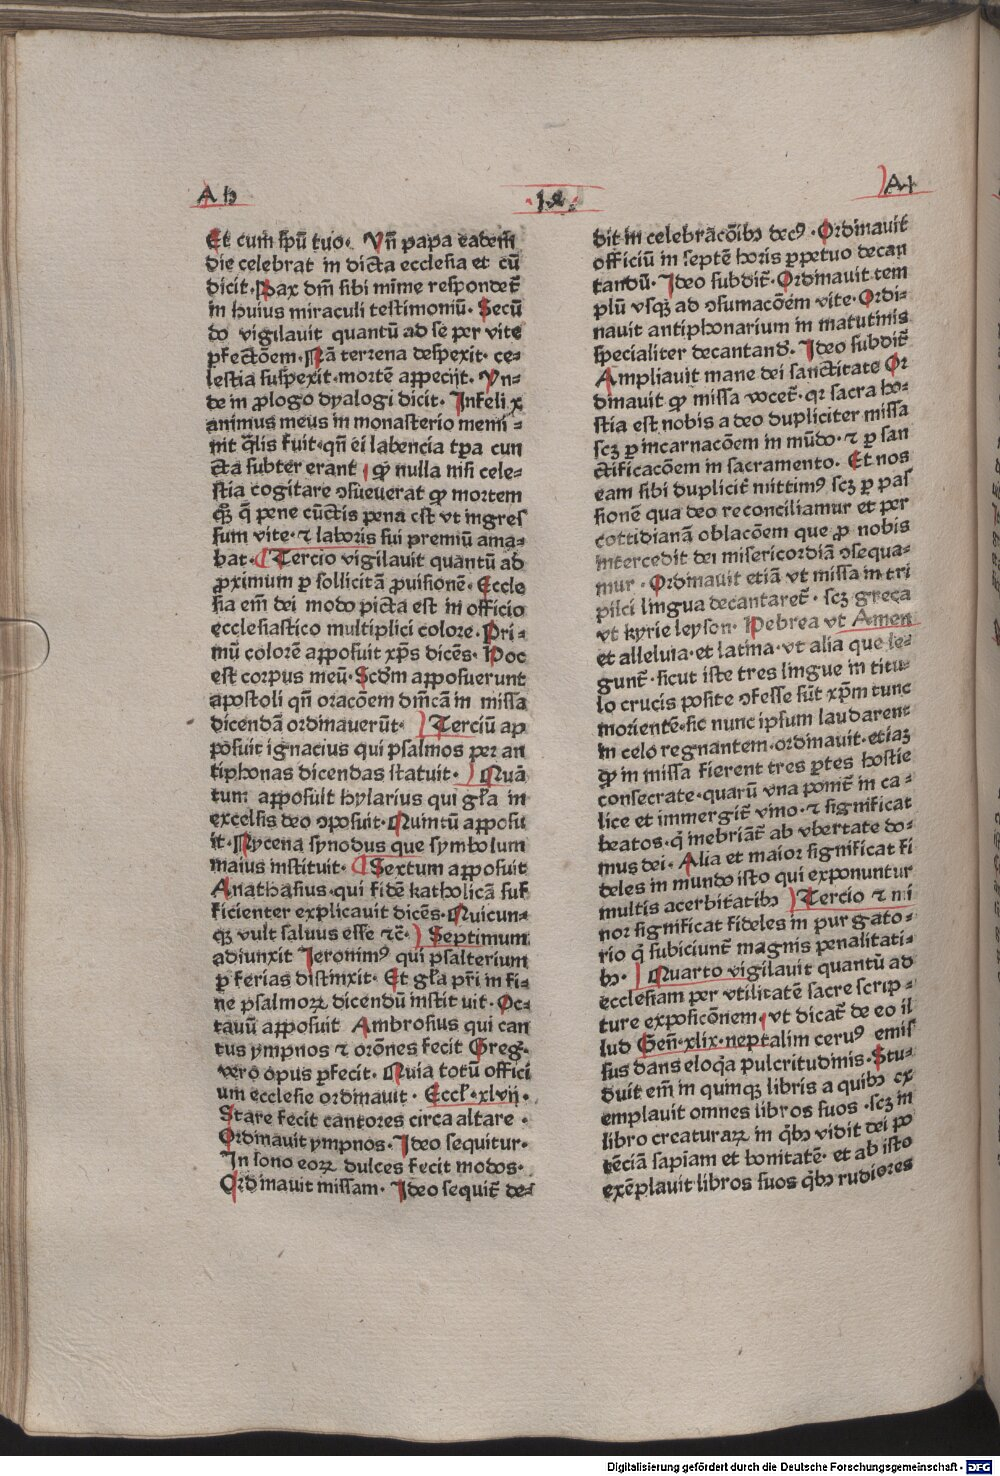 A h
·lx·
A i
Et cum spũ tuo. Vñ papa eadem̃
die celebrat in dicta ecclesia et cũ
dicit. Pax dñi sibi mĩme respondet᷑
in huius miraculi testimoniũ. Secũ
do vigilauit quantũ ad se per vite
ꝑfectõem. Nã terrena despexit. ce⸗
lestia suspexit. mortẽ appecijt. Vn⸗
de in ꝓlogo dyalogi dicit. Infelix
animus meus in monasterio memi⸗
nit q̃lis fuit. qñ ei labencia tp̃a cun
cta subter erant. ꝙ nulla nisi cele⸗
stia cogitare ꝯsueuerat ꝙ mortem
qꝫ q̃ pene cũctis pena est vt ingres
sum vite. ⁊ laboris sui premiũ ama⸗
bat. Tercio vigilauit quantũ ad
ꝓximum ꝑ sollicitã ꝓuisionẽ. Eccle
sia em̃ dei modo picta est in officio
ecclesiastico multiplici colore. Pri⸗
mũ colorẽ apposuit xp̃s dicẽs. Hoc
est corpus meũ. Scđm apposuerunt
apostoli qñ oracõem dñicã in missa
dicendã ordinauerũt. Terciũ ap
posuit ignacius qui psalmos per an
tiphonas dicendas statuit. Quã
tum apposuit hylarius qui gl̃a in
excelsis deo ꝯposuit. Quintũ apposu
it. Nycena synodus que symbolum
maius instituit. Sextum apposuit
Anathasius. qui fidẽ katholicã suf
ficienter explicauit dicẽs. Quicun⸗
qꝫ vult saluus esse ⁊c̃. Septimum
adiunxit Jeronimꝰ qui psalterium
ꝑ ferias distinxit. Et gl̃a pr̃i in fi⸗
ne psalmoꝝ dicendũ instituit. Oc⸗
tauũ apposuit Ambrosius qui can
tus ympnos ⁊ orõnes fecit Greg̃.
vero opus ꝑfecit. Quia totũ offici
um ecclesie ordinauit. Eccl̃. xlvij.
Stare fecit cantores circa altare.
Ordinauit ympnos. Ideo sequitur.
In sono eoꝝ dulces fecit modos.
Ordinauit missam. Ideo sequit᷑ de⸗
dit in celebracõibꝫ decꝰ. Ordinauit
officiũ in septẽ horis ꝑpetuo decan
tandũ. Ideo subdit᷑. Ordinauit tem
plũ vsqꝫ ad ꝯsumacõem vite. Ordi⸗
nauit antiphonarium in matutinis
specialiter decantand̃. Ideo subdit᷑
Ampliauit mane dei sanctitate Or
dinauit ꝙ missa vocet᷑. qr sacra ho⸗
stia est nobis a deo dupliciter missa
scꝫ ꝑ incarnacõem in mũdo. ⁊ ꝑ san
ctificacõem in sacramento. Et nos
eam sibi duplicit᷑ mittimꝰ scꝫ ꝑ pas
sionẽ qua deo reconciliamur et per
cottidianã oblacõem que ꝓ nobis
intercedit dei misericordiã ꝯsequa⸗
mur. Ordinauit etiã vt missa in tri
plici lingua decantaret᷑. scꝫ greca
vt kyrie leyson. Hebrea vt Amen
et alleluia. et latina. vt alia que le⸗
gunt᷑. sicut iste tres lingue in titu⸗
lo crucis posite ꝯfesse sũt xp̃m tunc
morientẽ. sic nunc ipsum laudarent
in celo regnantem. ordinauit. etiaꝫ
ꝙ in missa fierent tres ꝑtes hostie
consecrate. quarũ vna ponit᷑ in ca⸗
lice et immergit᷑ vino. ⁊ significat
beatos. q̃ inebriãt᷑ ab vbertate do⸗
mus dei. Alia et maior significat fi
deles in mundo isto qui exponuntur
multis acerbitatibꝫ Tercio ⁊ mi
nor significat fideles in purgato⸗
rio q̃ subiciunt᷑ magnis penalitati⸗
bꝫ. Quarto vigilauit quantũ ad
ecclesiam per vtilitatẽ sacre scrip⸗
ture exposicõnem. vt dicat᷑ de eo il
lud Geñ. xlix. neptalim ceruꝰ emis
sus dans eloq̃a pulcritudinis. Stu⸗
duit em̃ in quinqꝫ libris a quibꝫ ex
emplauit omnes libros suos. scꝫ in
libro creaturaꝝ in q̃bꝫ vidit dei po
tẽciã sapiam et bonitatẽ. et ab isto
exẽplauit libros suos q̃bꝫ rudiores
Digitalisierung gefördert durch die Deutsche Forschungsgemeinschaft - DFG